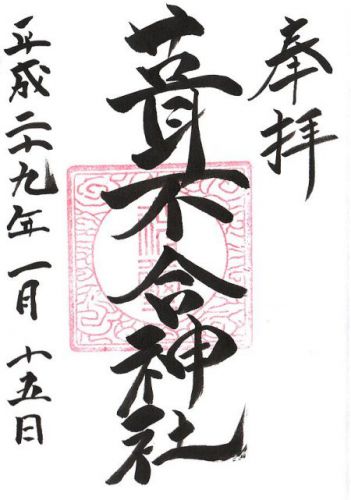 奉拝
葺不合神社
平成二十九年一月十五日